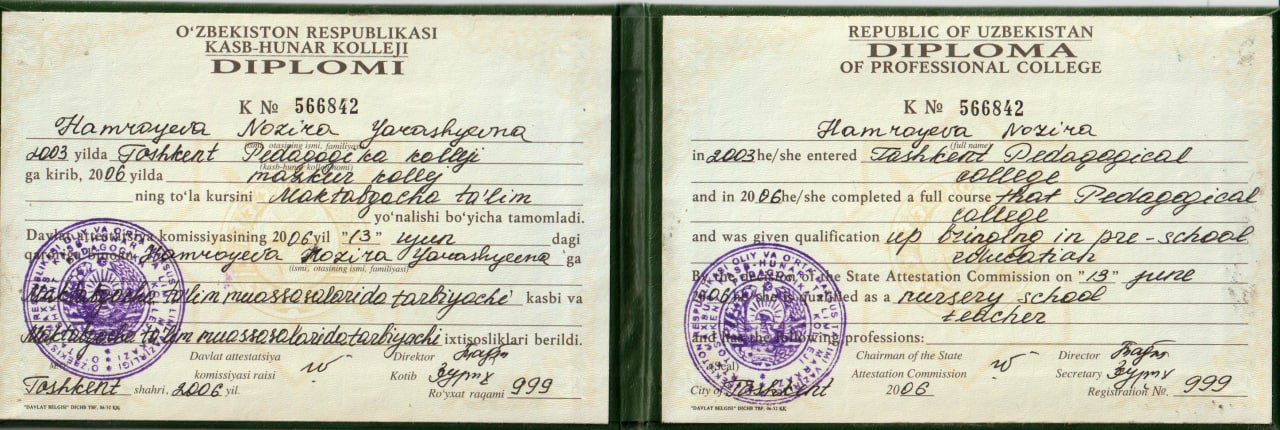 O'ZBEKISTON RESPUBLIKASI
KASB-HUNAR KOLLEJI
DIPLOMI
K № 566842
Hamroyeva Nozira Yarashyevna
(ismi, otasining ismi, familiyasi)
2003 yilda Toshkent Pedagogika kolleji
(kasb-hunar kolleji nomi)
ga kirib, 2006 yilda mazkur kollej
ning to'la kursini Maktabgacha ta'lim
yo'nalishi bo'yicha tamomladi.
Davlat attestatsiya komissiyasining 2006 yil "13" iyun dagi
qaroriga binoan Hamroyeva Nozira Yarashyevna ga
(ismi, otasining ismi, familiyasi)
Maktabgacha ta'lim muassasalarida tarbiyachi kasbi va
Maktabgacha ta'lim muassasalarida tarbiyachi ixtisosliklari berildi.
Davlat attestatsiya
komissiyasi raisi
Direktor
Kotib
Toshkent shahri, 2006 yil.
Ro'yxat raqami 999
"DAVLAT BELGISI" DICHB TBF,
REPUBLIC OF UZBEKISTAN
DIPLOMA
OF PROFESSIONAL COLLEGE
K № 566842
Hamroyeva Nozira
(full name)
in 2003 he/she entered Tashkent Pedagogical
college
and in 2006 he/she completed a full course that Pedagegical
college
and was given qualification up bringing in pre-school
education
By the decision of the State Attestation Commission on "13" june
2006 he/she is qualified as a nursery school
teacher
and has the following professions:
(Seal)
Chairman of the State
Attestation Commission
Director
Secretary
City of Tashkent 2006
Registration №. 999
"DAVLAT BELGISI" DICHB TBF,